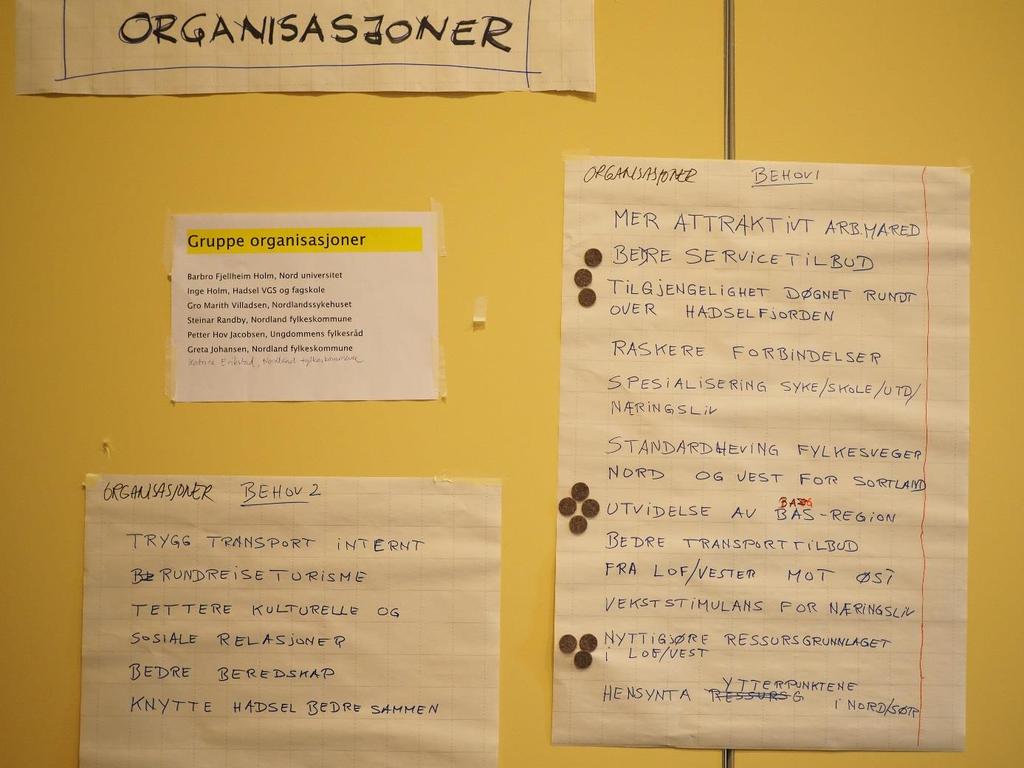 ORGANISASJONER
Gruppe organisasjoner
Barbro Fjellheim Holm, Nord universitet
Inge Holm, Hadsel VGS og fagskole
Gro Marith Villadsen, Nordlandssykehuset
Steinar Randby, Nordland fylkeskommune
Petter Hov Jacobsen, Ungdommens fylkesråd
Greta Johansen, Nordland fylkeskommune
Katrine Erikstad, Nordland fylkeskommune
ORGANISASJONER BEHOV 2
TRYGG TRANSPORT INTERNT
RUNDREISETURISME
TETTERE KULTURELLE OG
SOSIALE RELASJONER
BEDRE BEREDSKAP
KNYTTE HADSEL BEDRE SAMMEN
ORGANISASJONER BEHOV 1
MER ATTRAKTIVT ARB.MARED
BEDRE SERVICETILBUD
TILGJENGELIGHET DØGNET RUNDT
OVER HADSELFJORDEN
RASKERE FORBINDELSER
SPESIALISERING SYKE/SKOLE/UTD/
NÆRINGSLIV
STANDARDHEVING FYLKESVEGER
NORD OG VEST FOR SORTLAND
UTVIDELSE AV BAS-REGION
BEDRE TRANSPORTTILBUD
FRA LOF/VESTER MOT ØST
VEKSTSTIMULANS FOR NÆRINGSLIV
NYTTIGJØRE RESSURSGRUNNLAGET
I LOF/VEST
HENSYNTA YTTERPUNKTENE
I NORD/SØR